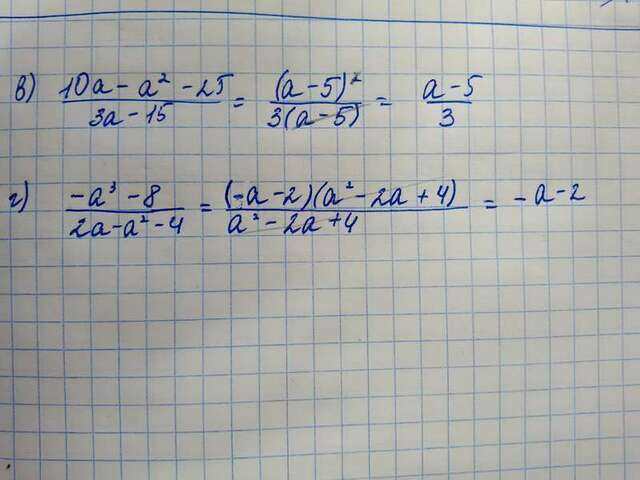 в) (10a - a² - 25)/(3a - 15) = (a - 5)²/(3(a - 5)) = (a - 5)/3
г) (-a³ - 8)/(2a - a² - 4) = (-a - 2)(a² - 2a + 4)/(a² - 2a + 4) = -a - 2